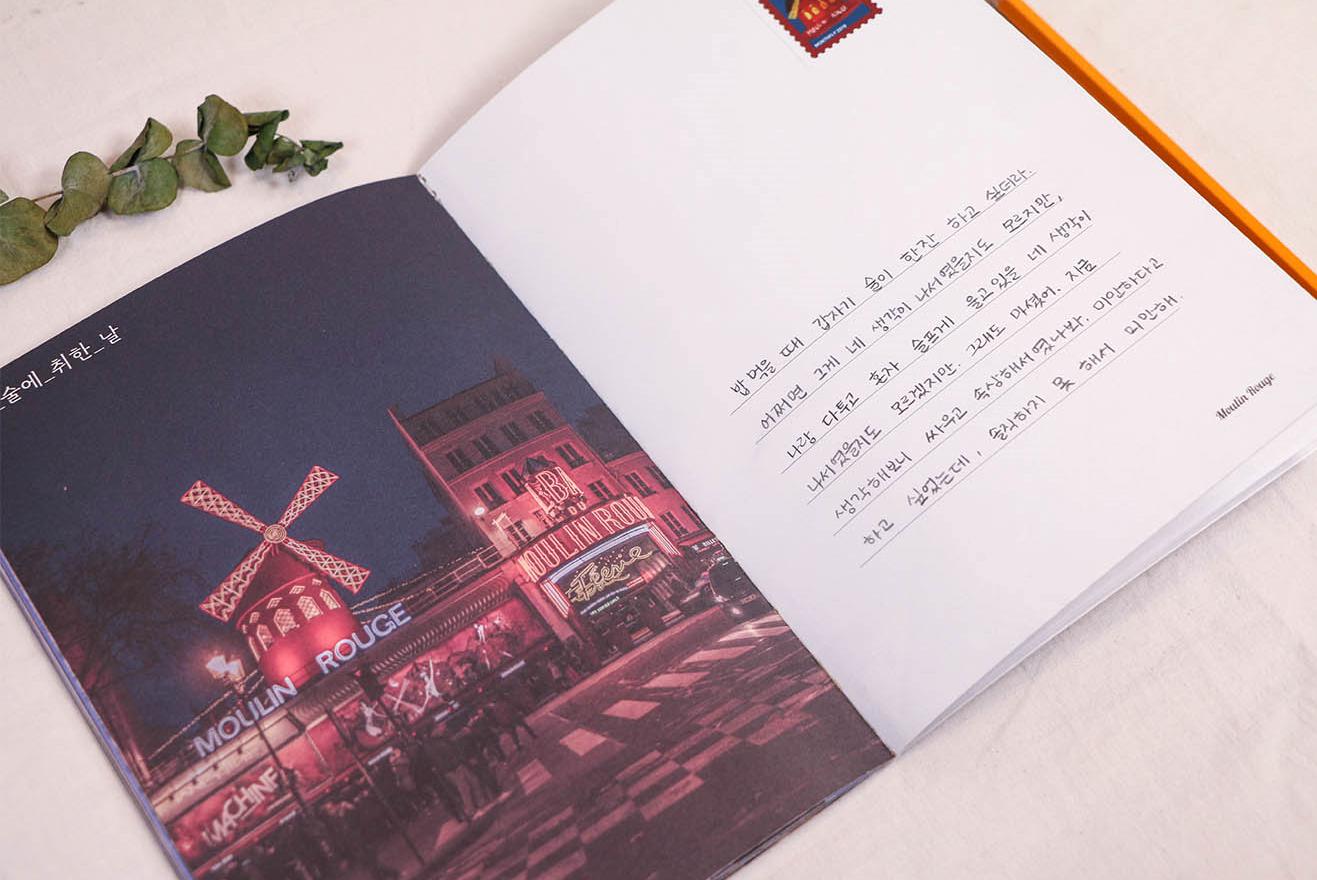 _술에_취한_날
MOULIN ROUGE
MACHINE
MOULIN ROU
Féerie
밥 먹을 때 갑자기 술이 한잔 하고 싶더라.
어쩌면 그게 네 생각이 나서였을지도 모르지만,
나랑 다투고 혼자 슬프게 울고있을 네 생각이
나서였을지도 모르겠지만. 그래도 마셨어. 지금
생각해보니 싸우고 속상해서였나봐. 미안하다고
하고 싶었는데, 솔직하지 못 해서 미안해.
Moulin Rouge